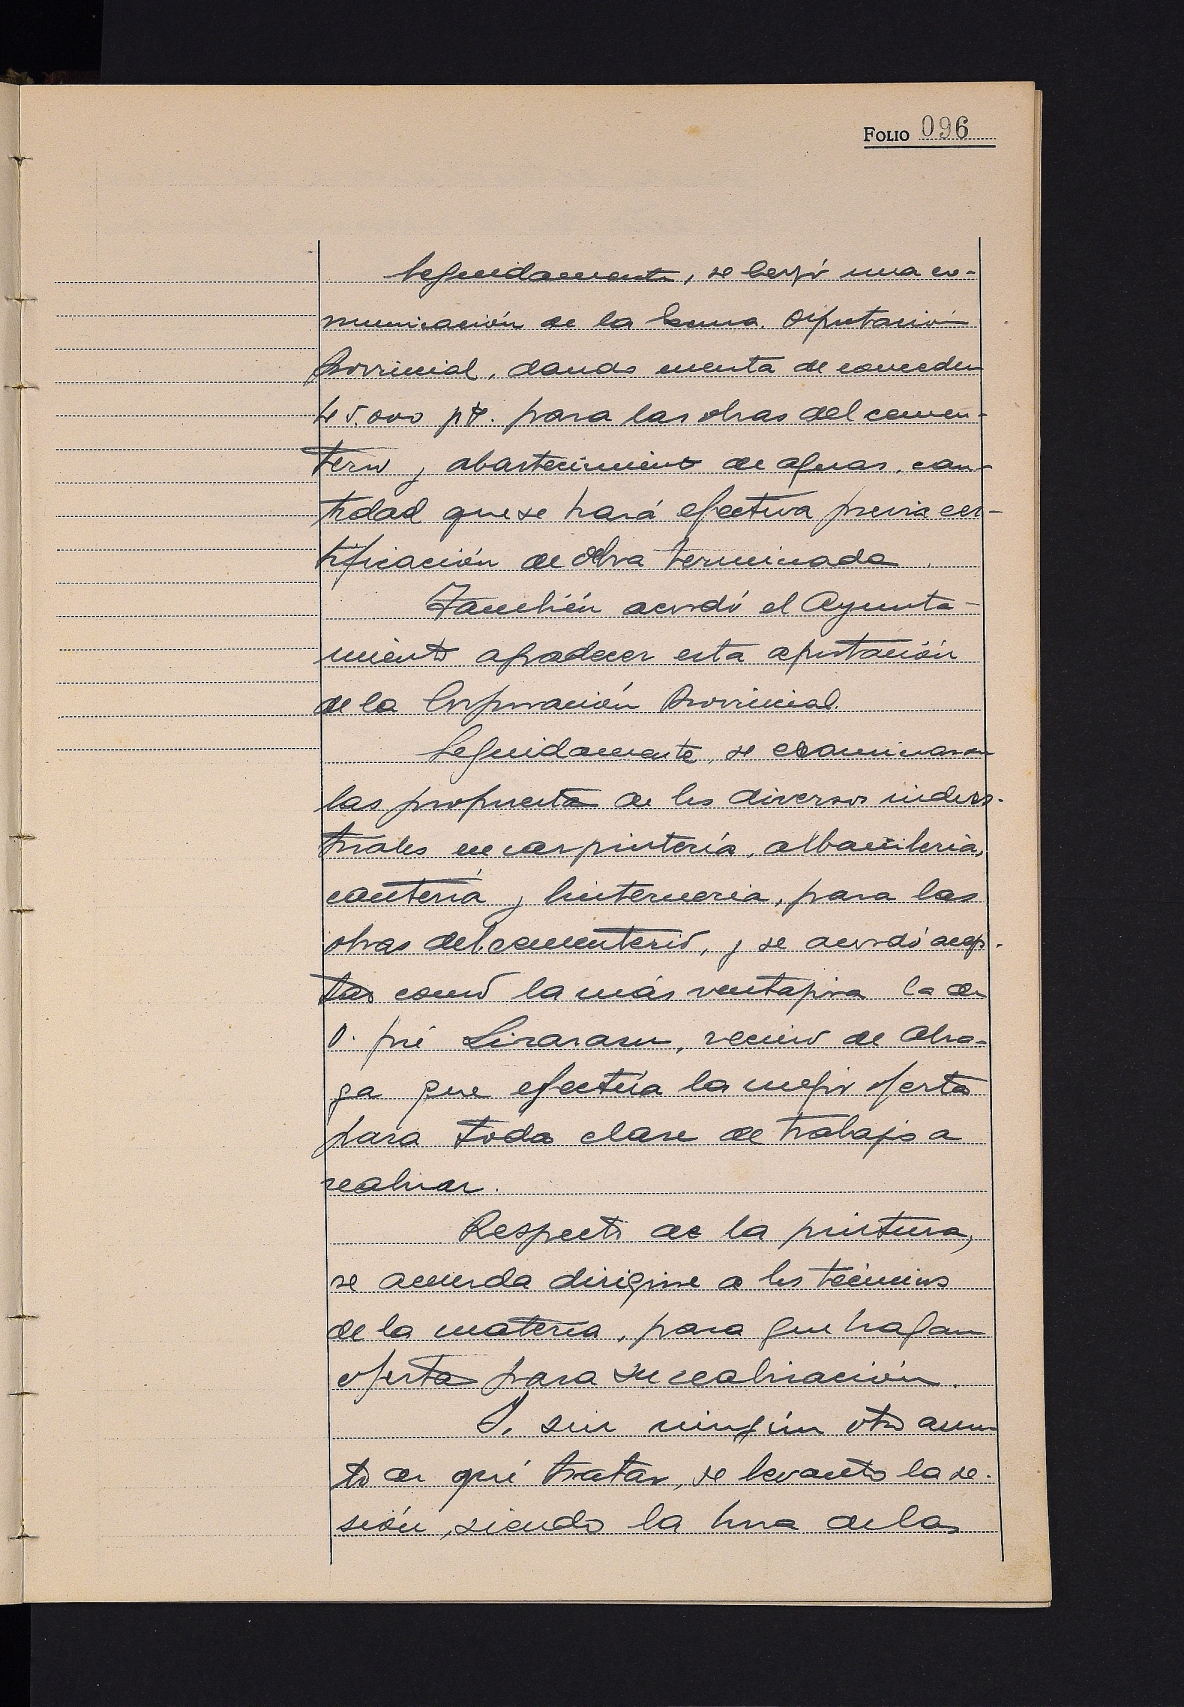 FOLIO 096
Seguidamente, se leyó una co-
municación de la Excma. Diputación
Provincial, dando cuenta de conceder
45.000 pts. para las obras del cemen-
terio y abastecimiento de aguas, can-
tidad que se hará efectiva previa cer-
tificación de obra terminada.
También acordó el Ayunta-
miento agradecer esta aportación
de la Corporación Provincial
Seguidamente, se examinaron
las propuesta de los diversos indus-
triales en carpintería, albañilería,
cantería y linternería, para las
obras del cementerio, y se acordó acep-
tar como la más ventajosa la de
D. José Lizarazu, vecino de
que efectúa la mejor oferta
para toda clase de trabajo a
realizar.
Respecto de la pintura,
se acuerda dirigirse a los técnicos
de la materia, para que hagan
oferta para su realización.
Y, sin ningún otro asun
to de qué tratar, se levanto la se-
sión, siendo la hora de las